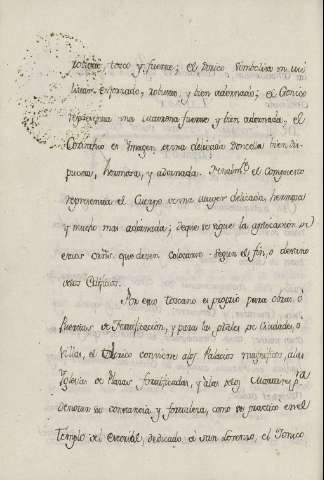 robusto tosco y fuerte; el Dorico, simboliza en un
varon esforzado, robusto, y bien adornado; el Jonico
representa una matrona fuerte y bien adornada, el
Corintio es Imagen de una delicada Doncella bien dis
puesta, hermosa, y adornada. el compuesto
representa el Cuerpo de una muger delicada, hermosa
y mucho mas adornada; de que se sigue la aplicacion de
estas ordns. que deven colocarse segun el fin, o destino
delos Edificios.
Por esto toscano es propio para obras, ó
Puertas de Fortificación, y para las ptales de Ciudades, ó
Villas, el Dorico conviene alos Palacios magnificos, alas
Yglesias de Plazas fortificadas, y alas delos
denotan su constancia, y fortaleza, como se practicó en el
Templo del Escorial, dedicado a san Lorenzo, el Jonico